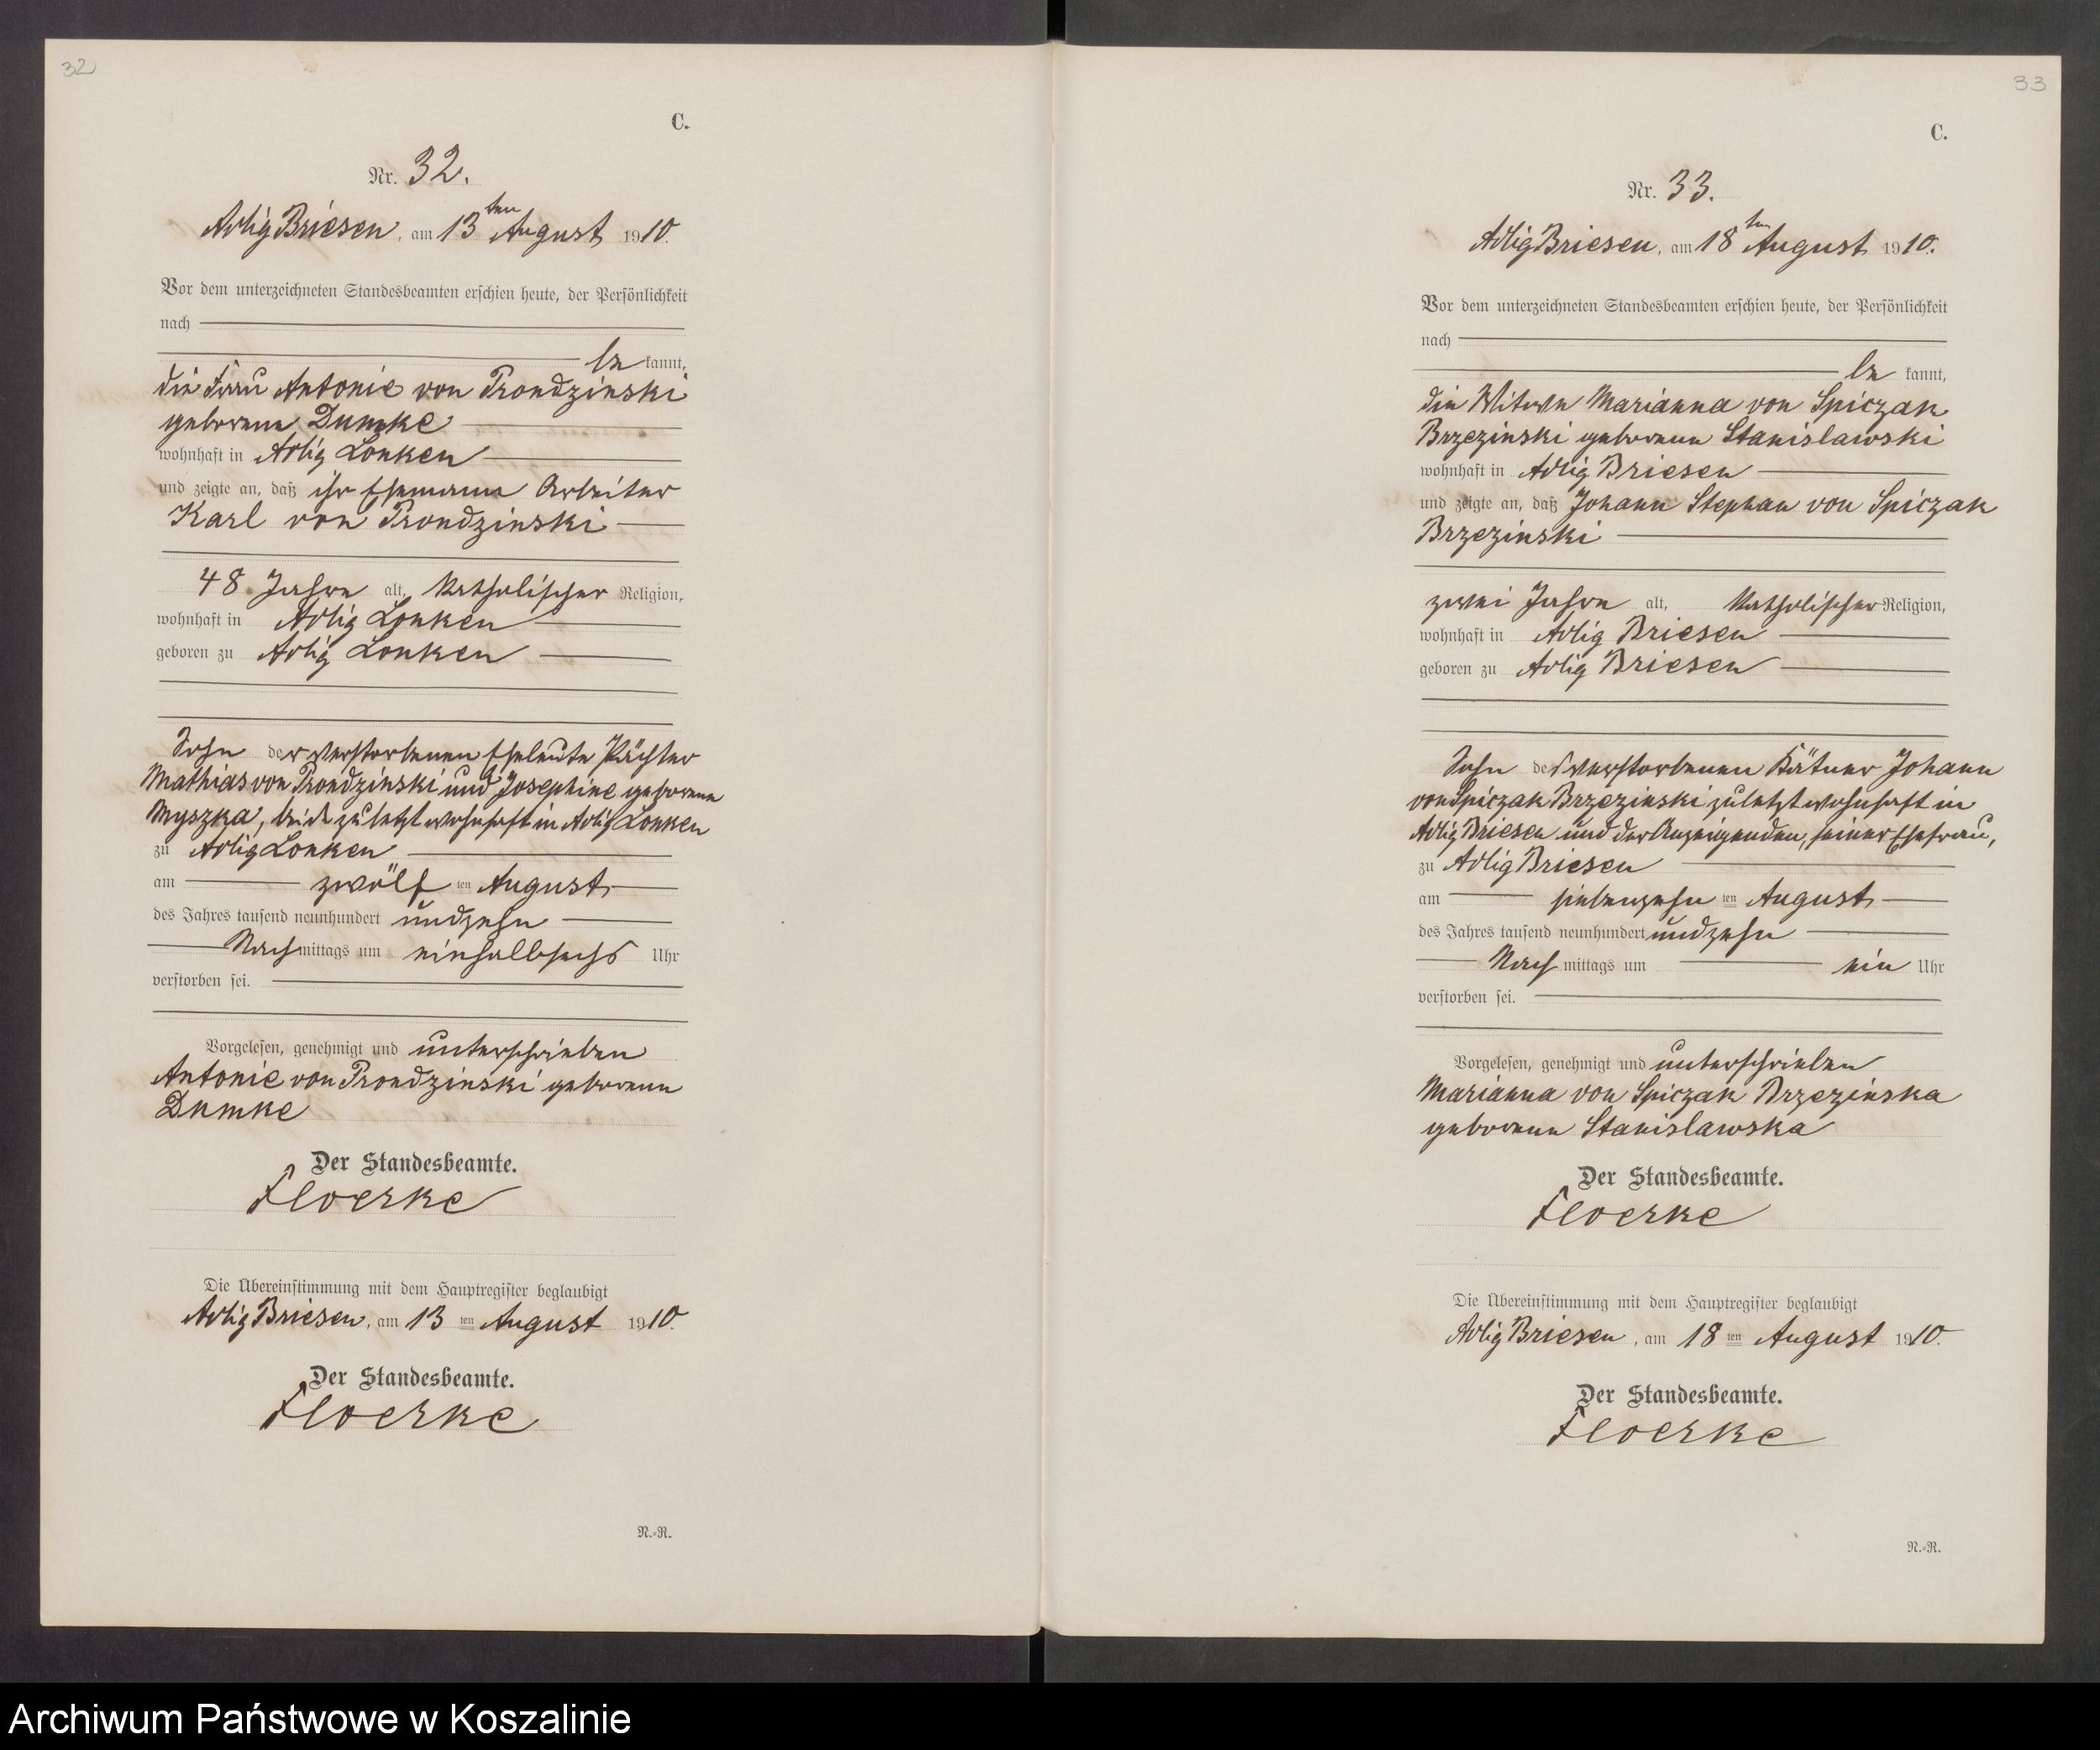 32
C.
Nr. 32.
Adlig Briesen, am 13ten August 1910.
Vor dem unterzeichneten Standesbeamten erschien heute, der Persönlichkeit
nach
be kannt,
die Frau Antonie von Prondzinski
geborene Dumke
wohnhaft in Adlig Lonken
und zeigte an, daß ihr Ehemann Arbeiter
Karl von Prondzinski
48 Jahre alt, katholischer Religion,
wohnhaft in Adlig Lonken
geboren zu Adlig Lonken
Sohn der verstorbenen Eheleute Pächter
Mathias von Prondzinski und Josephine geborene
Myszka, beide zuletzt wohnhaft in Adlig Lonken
zu Adlig Lonken
am zwölf ten August
des Jahres tausend neunhundert undzehn
Nachmittags um einhalbsechs Uhr
verstorben sei.
Vorgelesen, genehmigt und unterschrieben
Antonie von Prondzinski geborene
Dumke
Der Standesbeamte.
Floerke
Die Übereinstimmung mit dem Hauptregister beglaubigt
Adlig Briesen, am 13 ten August 1910.
Der Standesbeamte.
Floerke
N.-R.
33
C.
Nr. 33.
Adlig Briesen, am 18ten August 1910.
Vor dem unterzeichneten Standesbeamten erschien heute, der Persönlichkeit
nach
be kannt,
die Witwe Marianna von Spiczak
Brzezinski geborene Stanislawski
wohnhaft in Adlig Briesen
und zeigte an, daß Johann Stephan von Spiczak
Brzezinski
zwei Jahre alt, katholischer Religion,
wohnhaft in Adlig Briesen
geboren zu Adlig Briesen
Sohn des verstorbenen Kätner Johann
von Spiczak Brzezinski zuletzt wohnhaft in
Adlig Briesen und der Anzeigenden, seiner Ehefrau,
zu Adlig Briesen
am siebenzehn ten August
des Jahres tausend neunhundert undzehn
Nach mittags um ein Uhr
verstorben sei.
Vorgelesen, genehmigt und unterschrieben
Marianna von Spiczak Brzezinska
geborene Stanislawska
Der Standesbeamte.
Floerke
Die Übereinstimmung mit dem Hauptregister beglaubigt
Adlig Briesen, am 18 ten August 1910.
Der Standesbeamte.
Floerke
N.-R.
Archiwum Państwowe w Koszalinie